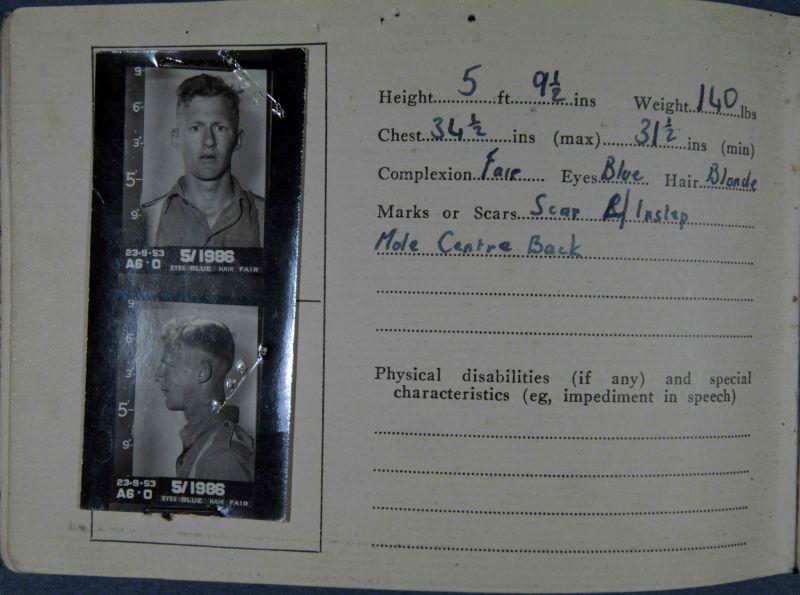 9
6
3
5
9
23·9·53 5/1986
A6·0 EYES BLUE HAIR FAIR
9
6
3
5
9
23·9·53 5/1986
A6·0 EYES BLUE HAIR FAIR
Height 5 ft 9½ ins Weight 140 lbs
Chest 34½ ins (max) 31½ ins (min)
Complexion Fair Eyes Blue Hair Blonde
Marks or Scars Scar R/Instep
Mole Centre Back
Physical disabilities (if any) and special
characteristics (eg, impediment in speech)